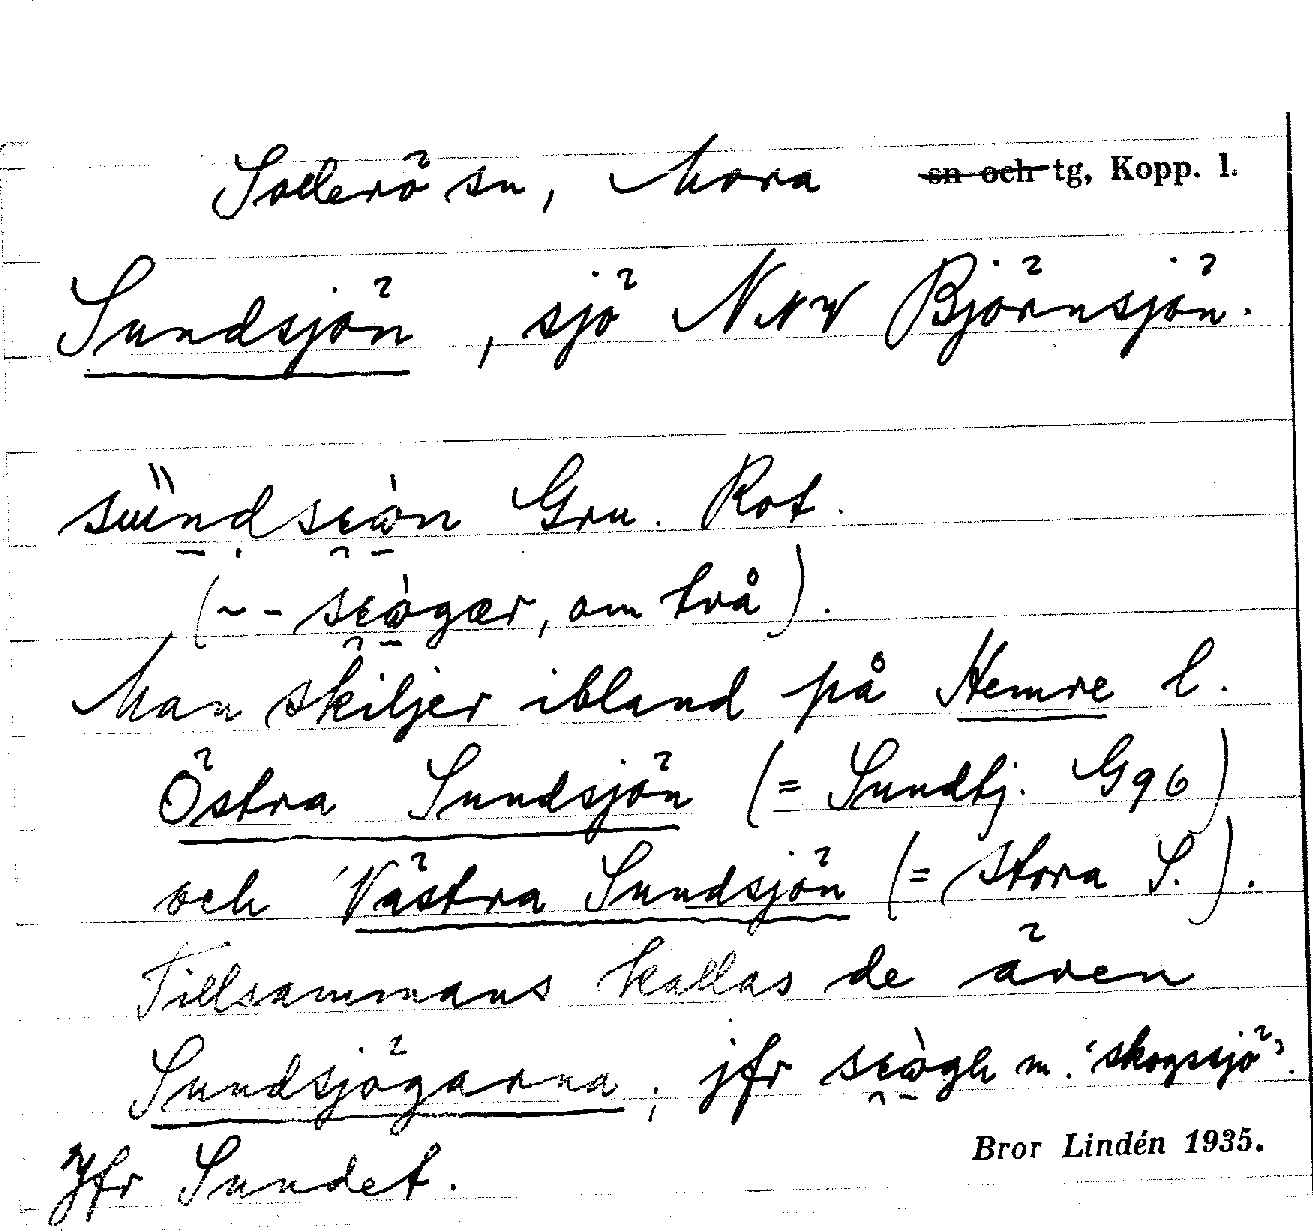 Sollerö sn, Mora ~~sn och~~ tg, Kopp. l.
Sundsjön, sjö NNW Björnsjön.
Gru. Rot.
(~ -- om två).
Man skiljer ibland på Hemre l.
Östra Sundsjön (= Sundtj. G96)
och Västra Sundsjön (= Stora S.).
Tillsammans kallas de även
Sundsjögarna; jfr m. 'skogssjö'.
Jfr Sundet.
Bror Lindén 1935.